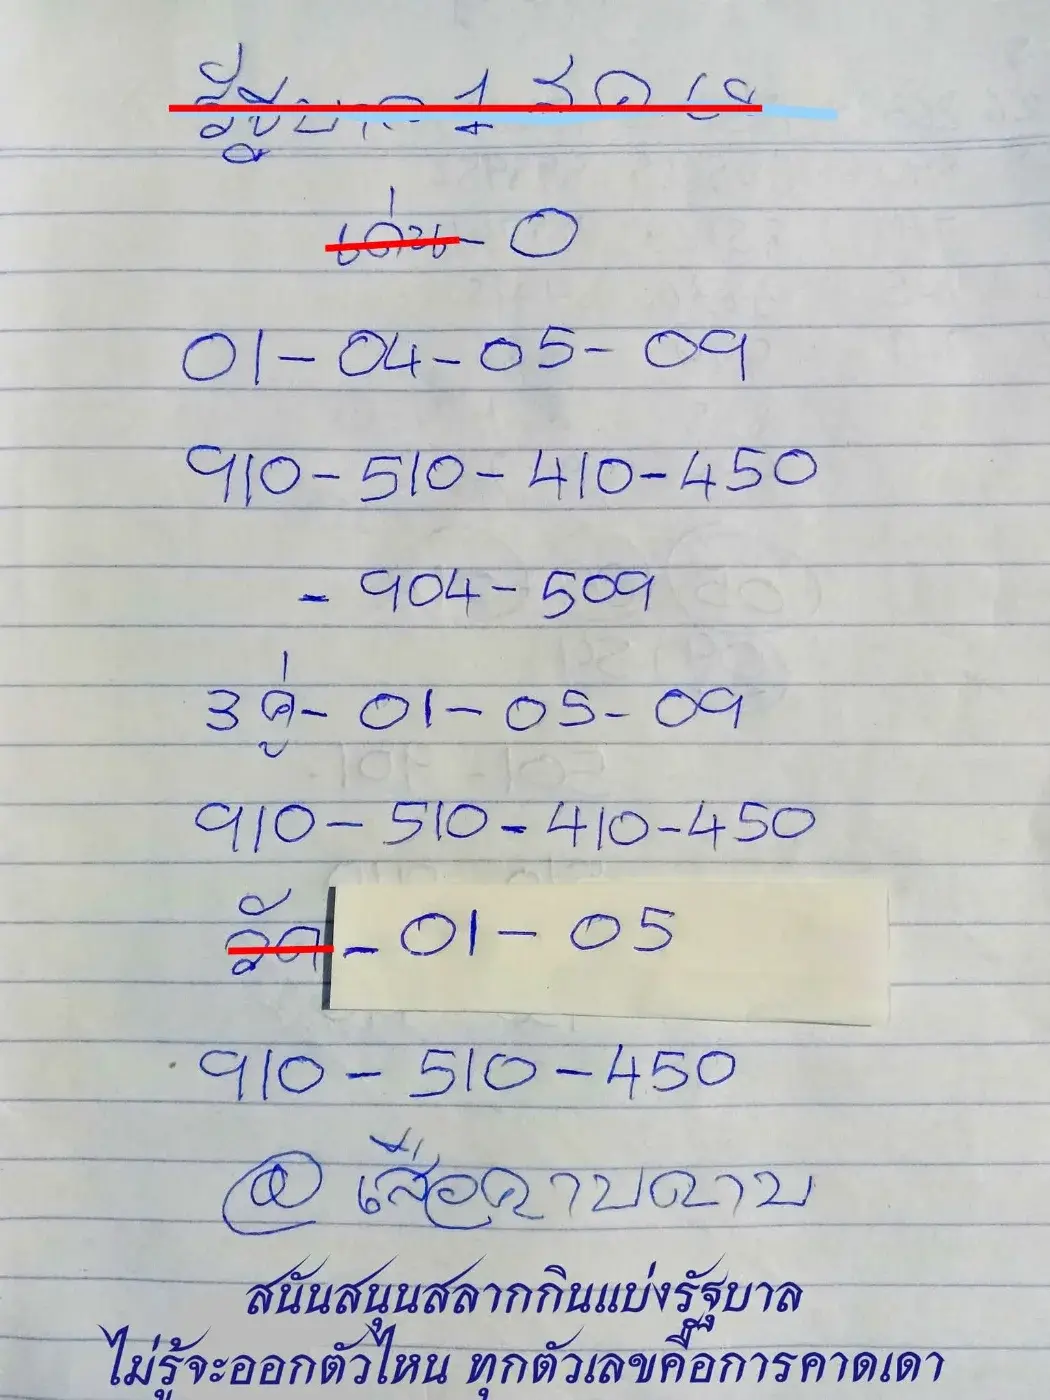 รัฐบาล 1 ส ค 68
เด่น - 0
01 - 04 - 05 - 09
910 - 510 - 410 - 450
- 904 - 509
3 คู่ - 01 - 05 - 09
910 - 510 - 410 - 450
รัด - 01 - 05
910 - 510 - 450
@ เสือคาบดาบ
สนันสนุนสลากกินแบ่งรัฐบาล
ไม่รู้จะออกตัวไหน ทุกตัวเลขคือการคาดเดา